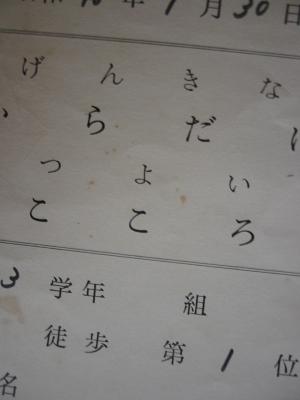 年1月30日
げんきな
らだ
つよい
こころ
3学年 組
徒歩 第1位
名